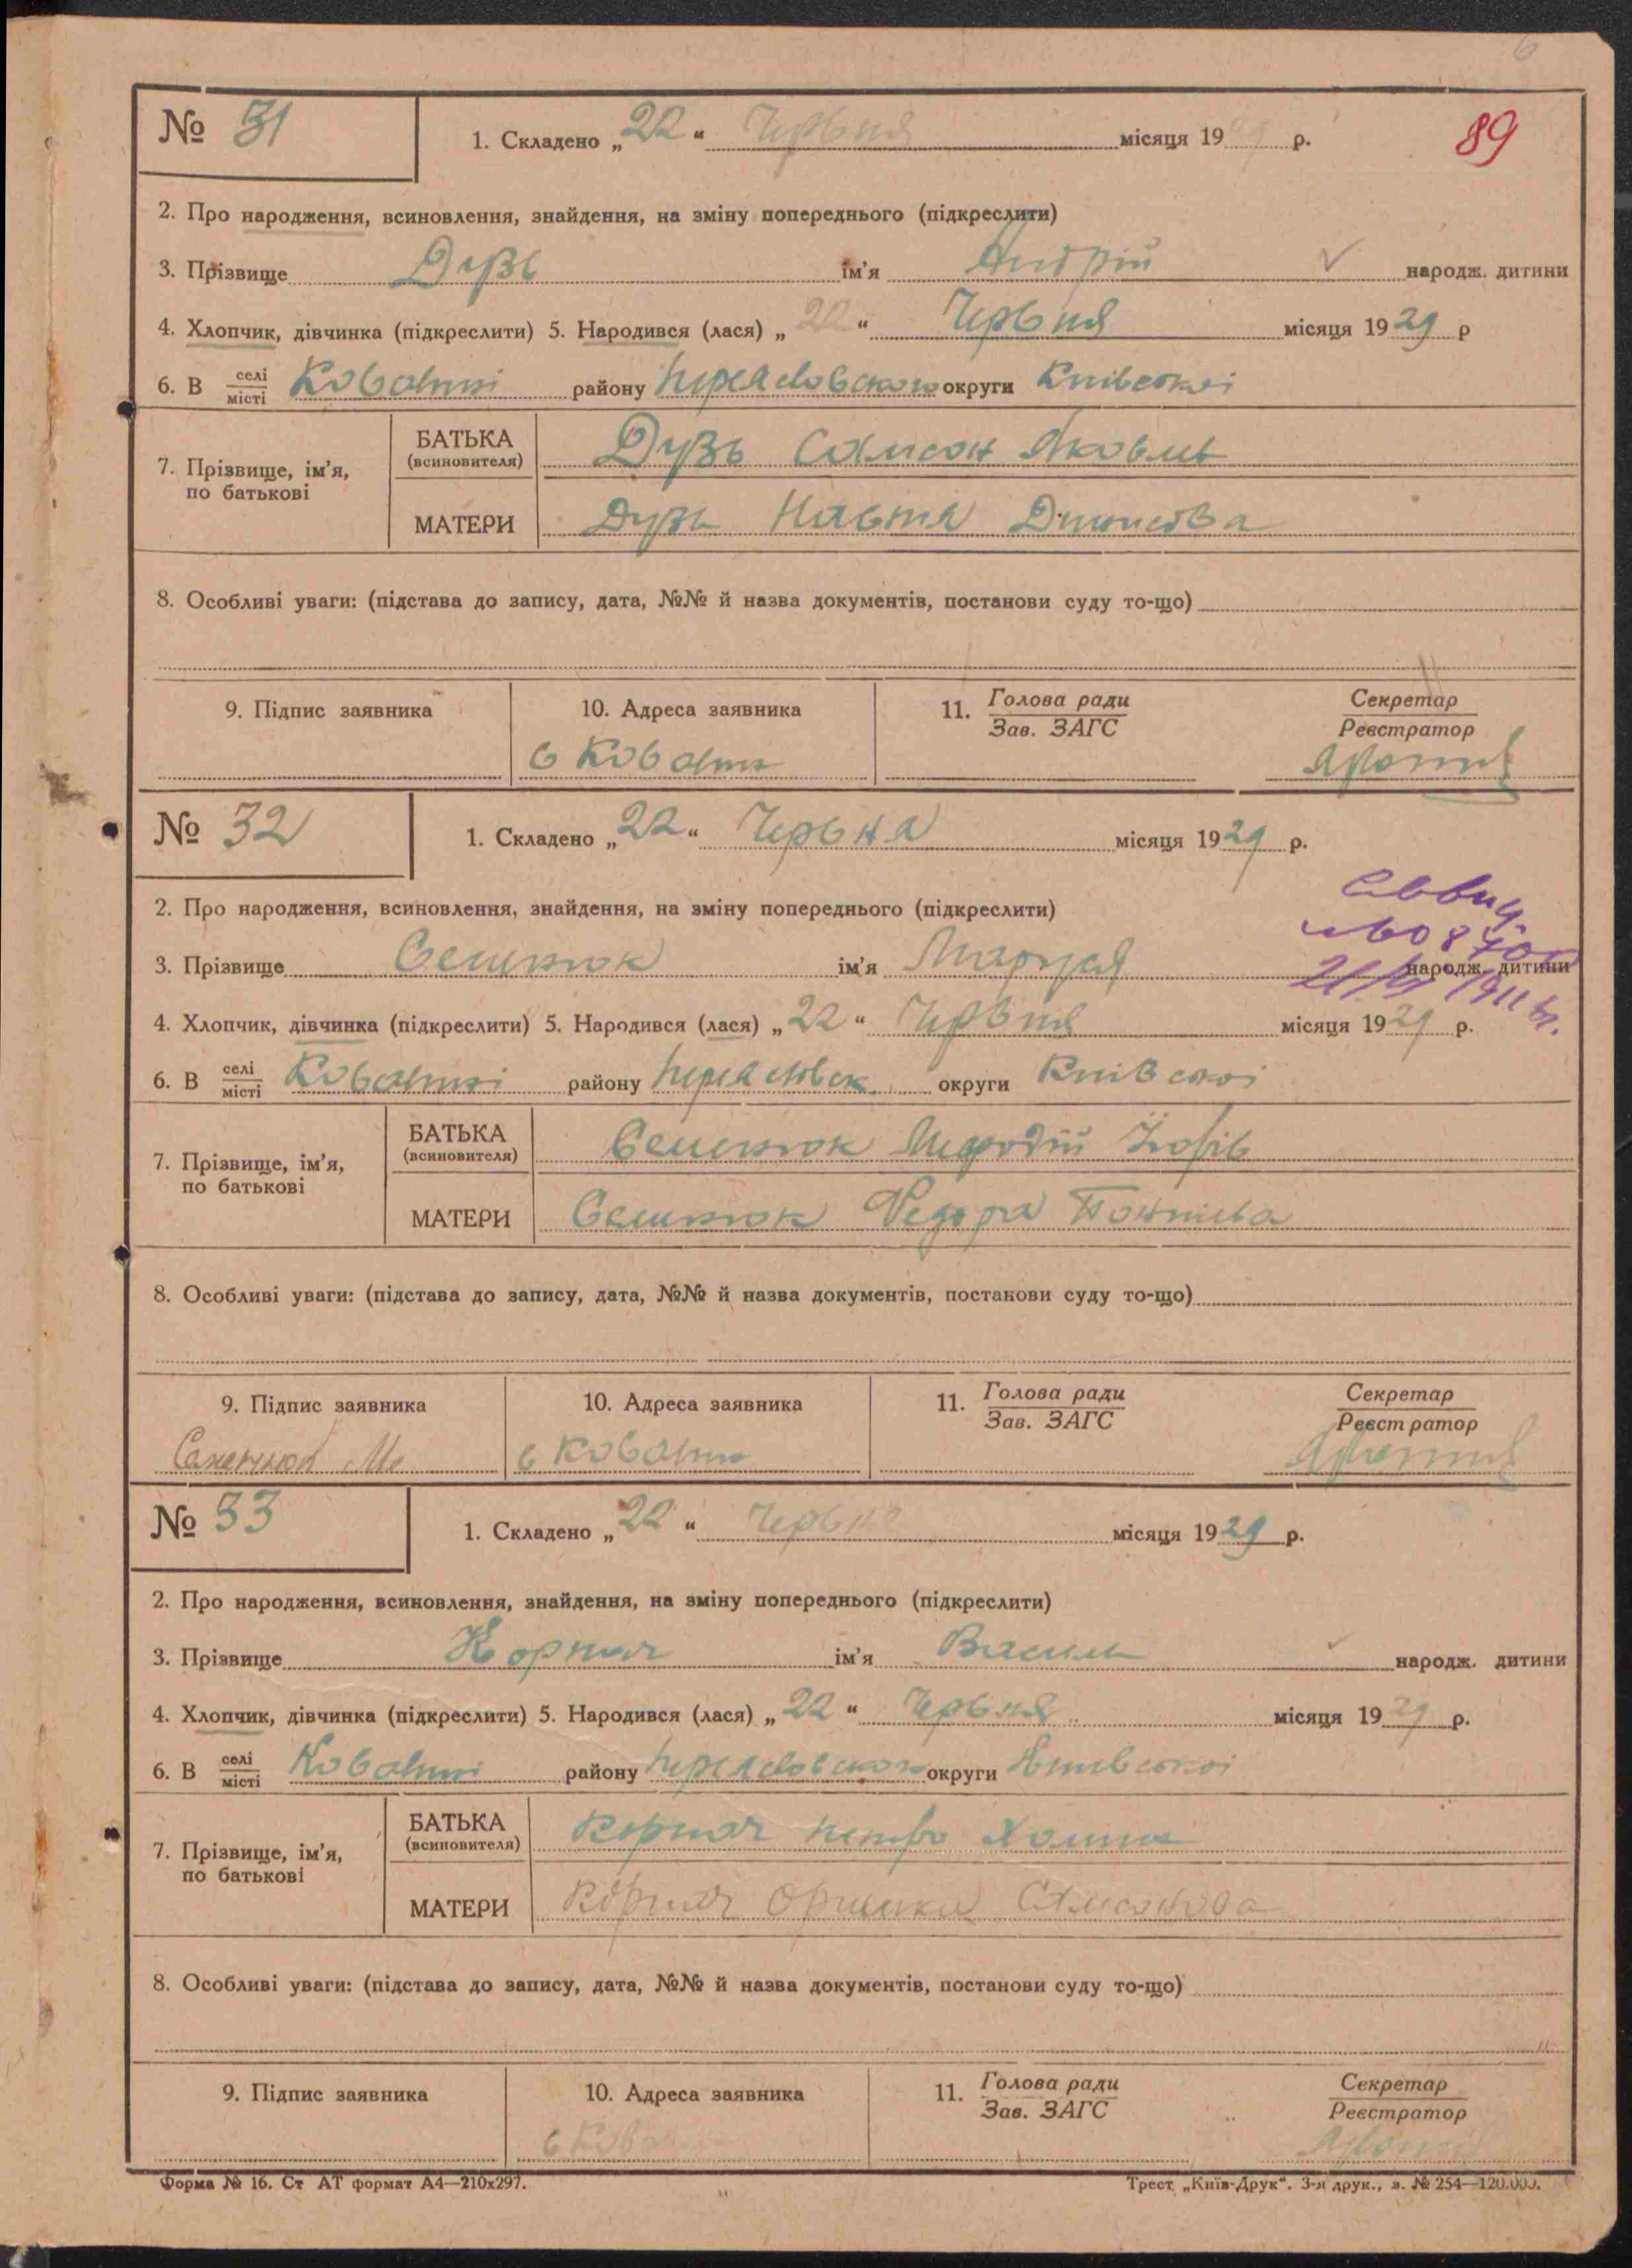 6
№ 31
1. Складено „22“ Червня місяця 1929 р.
89
2. Про народження, всиновлення, знайдення, на зміну попереднього (підкреслити)
3. Прізвище Дузь ім'я Андрій народж. дитини
4. Хлопчик, дівчинка (підкреслити) 5. Народився (лася) „22“ Червня місяця 1929 р
6. В селі/місті Ковалині району Переясловского округи Київскої
7. Прізвище, ім'я, по батькові
БАТЬКА (всиновителя) Дузь Самсон Яковлів
МАТЕРИ Дузь Настя
8. Особливі уваги: (підстава до запису, дата, №№ й назва документів, постанови суду то-що)
9. Підпис заявника
10. Адреса заявника
11. Голова ради / Зав. ЗАГС
Секретар / Реєстратор
с Ковалин
№ 32
1. Складено „22“ Червня місяця 1929 р.
2. Про народження, всиновлення, знайдення, на зміну попереднього (підкреслити)
3. Прізвище Семенюк ім'я Маруся народж. дитини
4. Хлопчик, дівчинка (підкреслити) 5. Народився (лася) „22“ Червня місяця 1929 р.
6. В селі/місті Ковалині району Переясловск округи Київскої
7. Прізвище, ім'я, по батькові
БАТЬКА (всиновителя) Семенюк Мефодій
МАТЕРИ Семенюк Федора
8. Особливі уваги: (підстава до запису, дата, №№ й назва документів, постанови суду то-що)
9. Підпис заявника
10. Адреса заявника
11. Голова ради / Зав. ЗАГС
Секретар / Реєстратор
Семенюк Ме с Ковалин
№ 33
1. Складено „22“ Червня місяця 1929 р.
2. Про народження, всиновлення, знайдення, на зміну попереднього (підкреслити)
3. Прізвище Корпач ім'я Василь народж. дитини
4. Хлопчик, дівчинка (підкреслити) 5. Народився (лася) „22“ Червня місяця 1929 р.
6. В селі/місті Ковалині району Переясловского округи Київської
7. Прізвище, ім'я, по батькові
БАТЬКА (всиновителя) Корпач Петро
МАТЕРИ Корпач Оришка Самсонова
8. Особливі уваги: (підстава до запису, дата, №№ й назва документів, постанови суду то-що)
9. Підпис заявника
10. Адреса заявника
11. Голова ради / Зав. ЗАГС
Секретар / Реєстратор
с Кова
Форма № 16. Ст АТ формат А4—210х297.
Трест „Київ-Друк“. 3-я друк., з. № 254—120.000.